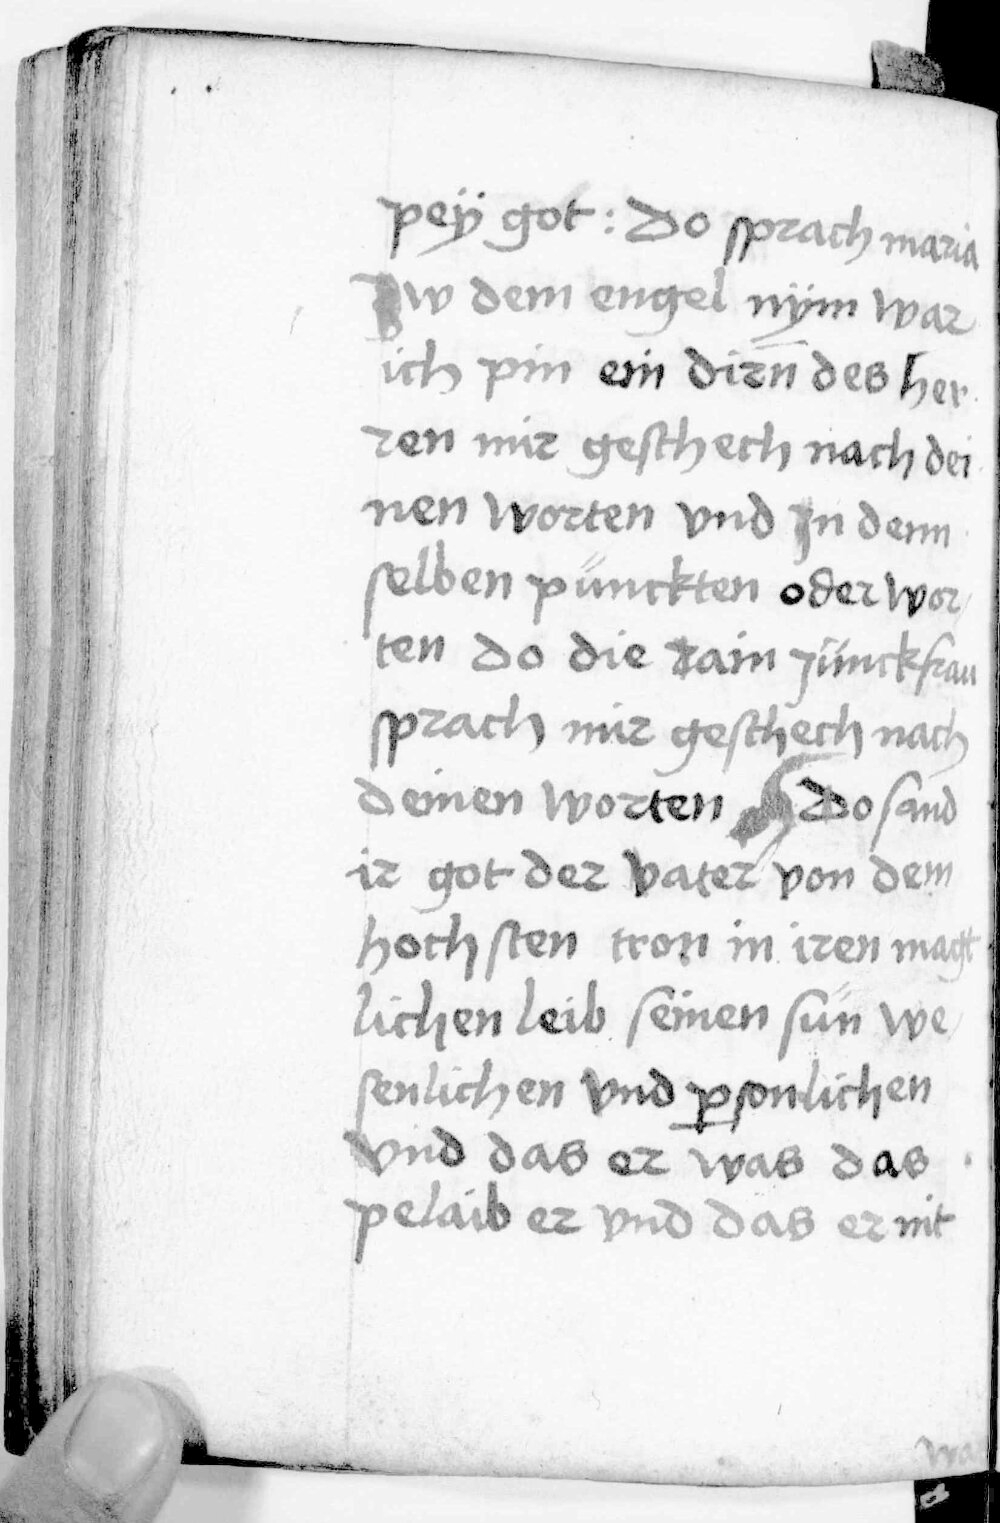 peÿ got : Do sprach maria
Zw dem engel nÿm war
ich pin ein dirn̄ des her
ren mir geschech nach dei
nen worten vnd Jn dem
selben pünckten oder wor
ten do die rain jünckfrau
sprach mir geschech nach
deinen worten Do sand
ir got der vater von dem
hochsten tron in iren magt
lichen leib seinen sün we
senlichen vnd ꝑsonlichen
vnd das er was das
pelaib er vnd das er nit
wa